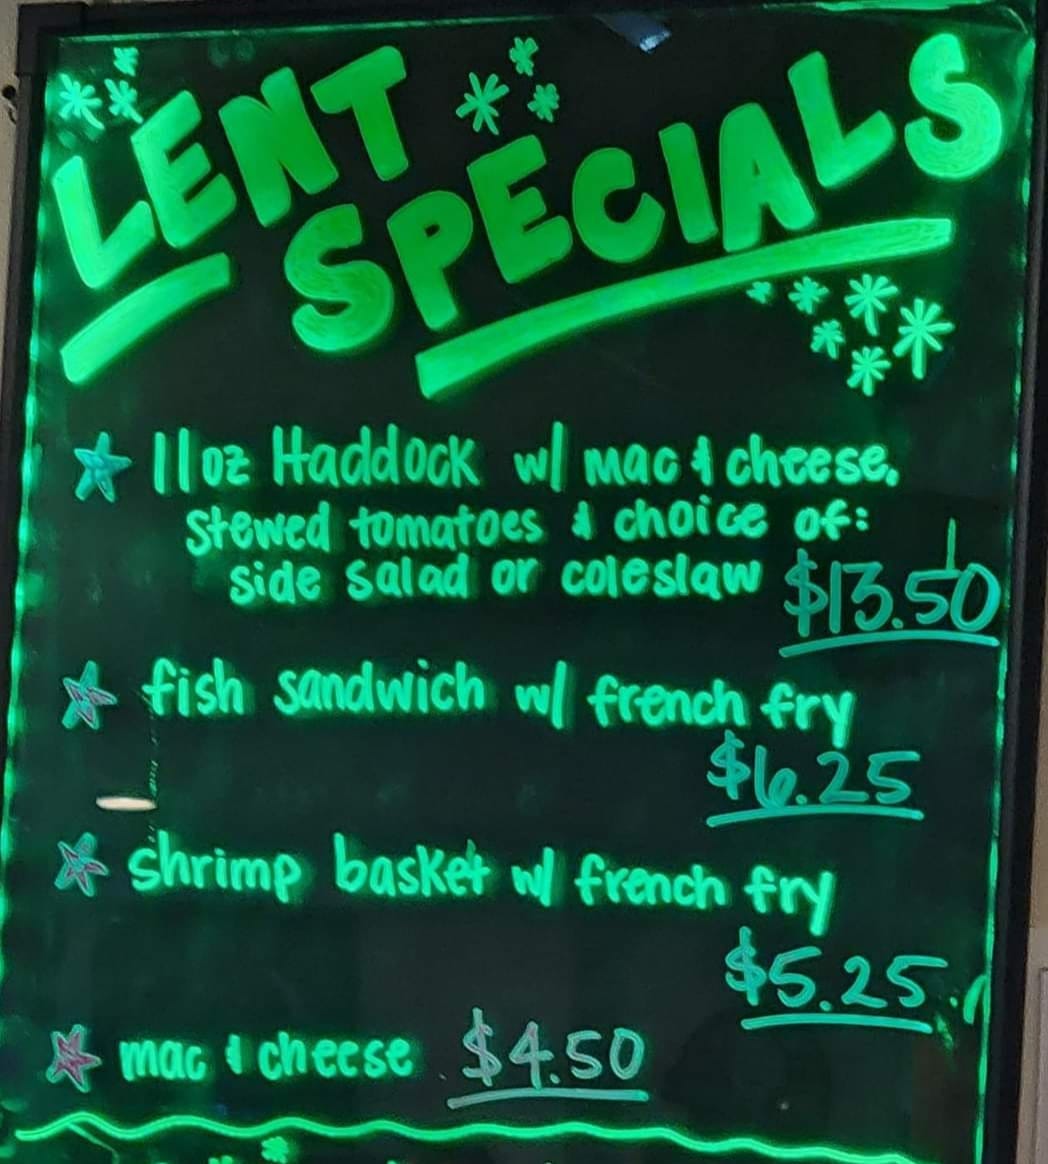 LENT
SPECIALS
11oz Haddock w/ mac & cheese,
stewed tomatoes & choice of:
side salad or coleslaw $13.50
fish sandwich w/ french fry
$6.25
shrimp basket w/ french fry
$5.25
mac & cheese $4.50